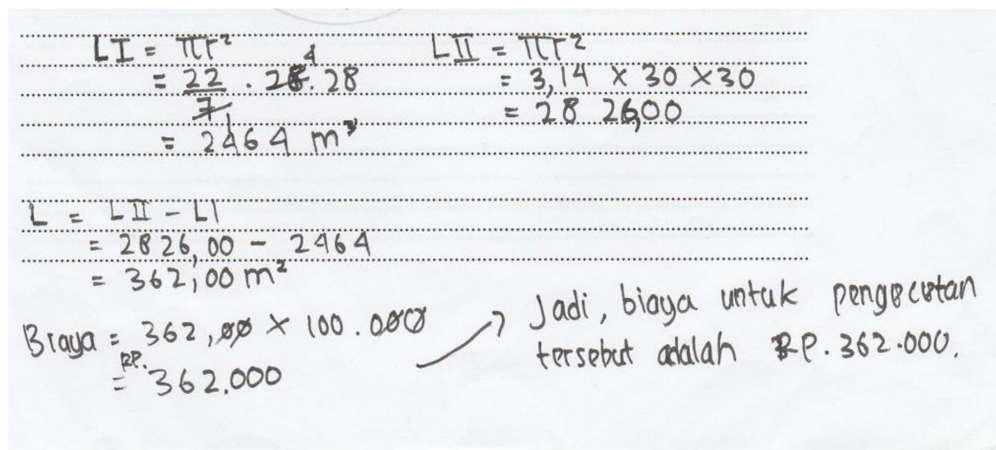 LI = πr²
= 22/7 . 28 . 28
4
1
= 2464 m³
LII = πr²
= 3,14 x 30 x 30
= 28 26,00
L = LII - LI
= 2826,00 - 2464
= 362,00 m²
Biaya = 362,00 x 100.000
= RP. 362.000
Jadi, biaya untuk pengecetan
tersebut adalah RP. 362.000.